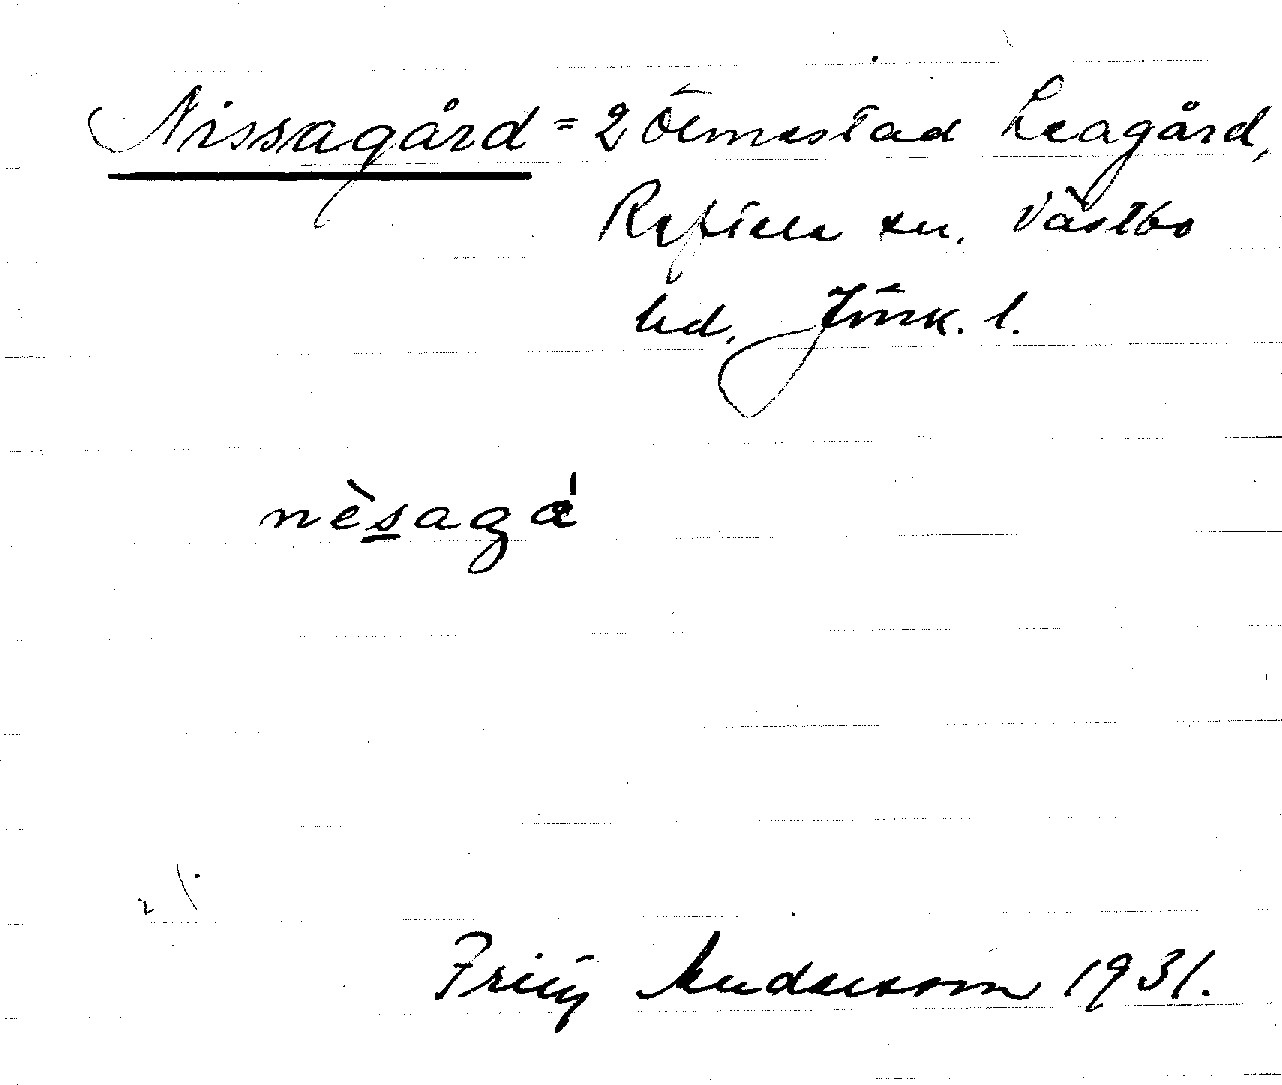 Nissagård = 2 Ölmestad Leagård,
Reftele sn. Västbo
hd. Jönk. l.
nèsagá
Fritz Andersson 1931.